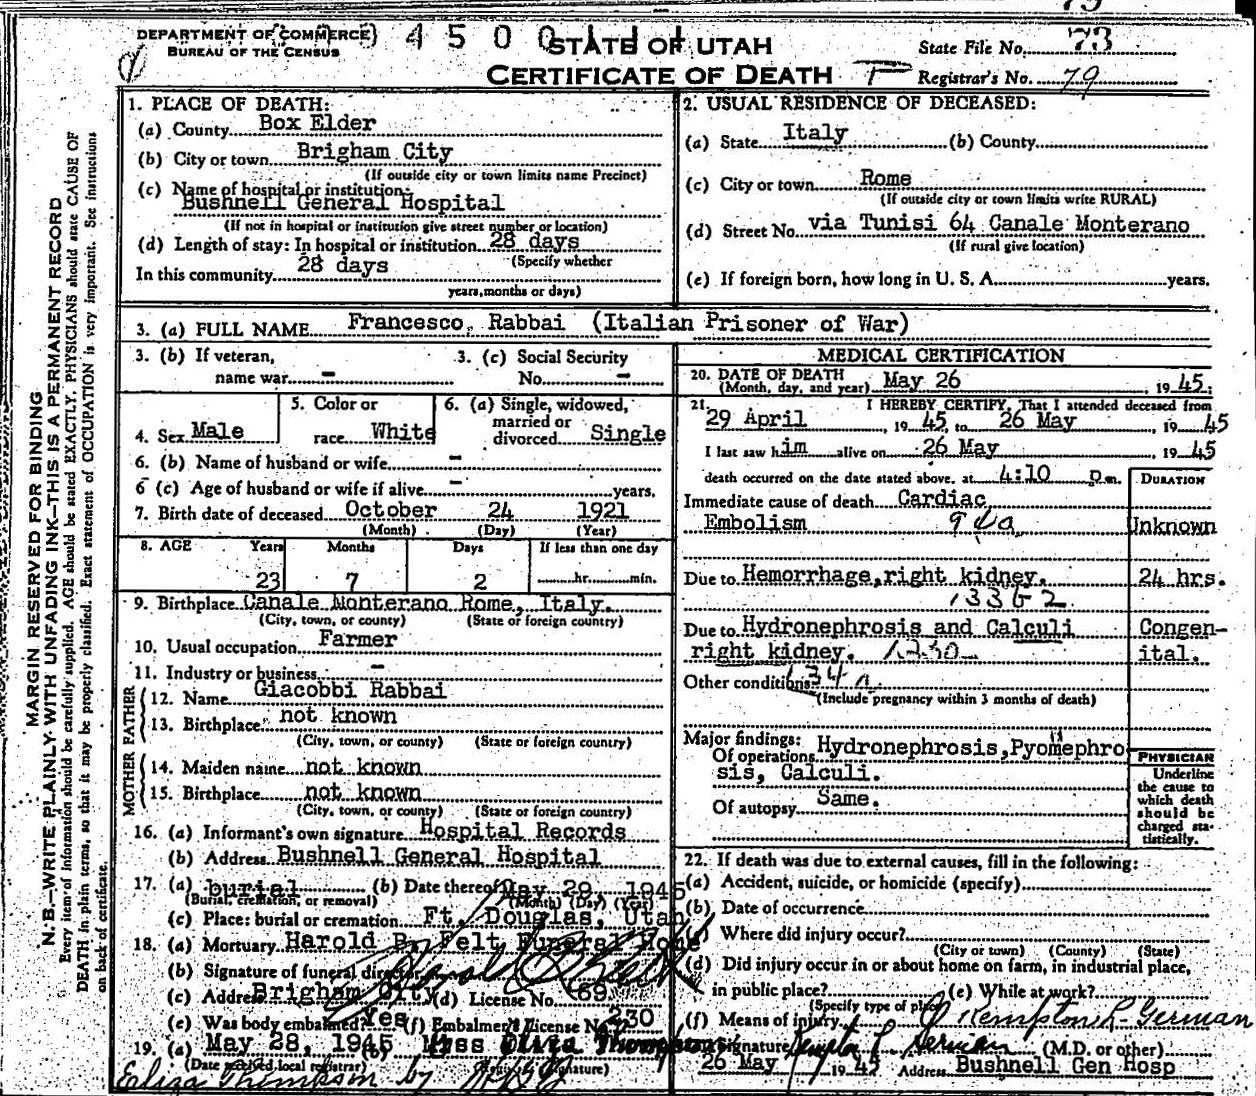 DEPARTMENT OF COMMERCE
BUREAU OF THE CENSUS
4 5 0 0
STATE OF UTAH
CERTIFICATE OF DEATH
State File No. 73
Registrar's No. 79
MARGIN RESERVED FOR BINDING
N. B.—WRITE PLAINLY WITH UNFADING INK—THIS IS A PERMANENT RECORD
Every item of information should be carefully supplied. AGE should be stated EXACTLY. PHYSICIANS should state CAUSE OF
DEATH in plain terms, so that it may be properly classified. Exact statement of OCCUPATION is very important. See instructions
on back of certificate.
1. PLACE OF DEATH:
(a) County Box Elder
(b) City or town Brigham City
(If outside city or town limits name Precinct)
(c) Name of hospital or institution:
Bushnell General Hospital
(If not in hospital or institution give street number or location)
(d) Length of stay: In hospital or institution 28 days
(Specify whether
In this community 28 days
years, months or days)
2. USUAL RESIDENCE OF DECEASED:
(a) State Italy (b) County
(c) City or town Rome
(If outside city or town limits write RURAL)
(d) Street No. via Tunisi 64 Canale Monterano
(If rural give location)
(e) If foreign born, how long in U. S. A. years.
3. (a) FULL NAME Francesco Rabbai (Italian Prisoner of War)
3. (b) If veteran,
name war –
3. (c) Social Security
No. –
4. Sex Male
5. Color or
race White
6. (a) Single, widowed,
married or
divorced Single
6. (b) Name of husband or wife –
6 (c) Age of husband or wife if alive – years.
7. Birth date of deceased October 24 1921
(Month) (Day) (Year)
8. AGE Years Months Days If less than one day
23 7 2 hr. min.
9. Birthplace Canale Monterano Rome, Italy.
(City, town, or county) (State or foreign country)
10. Usual occupation Farmer
11. Industry or business –
FATHER
12. Name Giacobbi Rabbai
13. Birthplace not known
(City, town, or county) (State or foreign country)
MOTHER
14. Maiden name not known
15. Birthplace not known
(City, town, or county) (State or foreign country)
16. (a) Informant's own signature Hospital Records
(b) Address Bushnell General Hospital
17. (a) burial (b) Date thereof May 29, 1945
(Burial, cremation, or removal) (Month) (Day) (Year)
(c) Place: burial or cremation Ft. Douglas, Utah
18. (a) Mortuary Harold B. Felt Funeral Home
(b) Signature of funeral director Harold B Felt
(c) Address Brigham City (d) License No. 69
(e) Was body embalmed? Yes (f) Embalmer's License No. 230
19. (a) May 28, 1945 (b) Miss Eliza Thompson
(Date received local registrar) (Registrar's signature)
Eliza Thompson by
MEDICAL CERTIFICATION
20. DATE OF DEATH
(Month, day, and year) May 26, 1945.
21. I HEREBY CERTIFY, That I attended deceased from
29 April, 1945, to 26 May, 1945
I last saw him alive on 26 May, 1945
death occurred on the date stated above, at 4:10 p.m.
DURATION
Immediate cause of death Cardiac
Embolism Unknown
Due to Hemorrhage, right kidney. 24 hrs.
Due to Hydronephrosis and Calculi Congen-
right kidney. ital.
Other conditions
(Include pregnancy within 3 months of death)
Major findings:
Of operations Hydronephrosis, Pyomephro
sis, Calculi.
Of autopsy Same.
PHYSICIAN
Underline
the cause to
which death
should be
charged sta-
tistically.
22. If death was due to external causes, fill in the following:
(a) Accident, suicide, or homicide (specify)
(b) Date of occurrence
(c) Where did injury occur?
(City or town) (County) (State)
(d) Did injury occur in or about home on farm, in industrial place,
in public place? (e) While at work?
(Specify type of place)
(f) Means of injury Kempton R. German
Signature Kempton R German (M.D. or other)
26 May 1945 Address Bushnell Gen Hosp